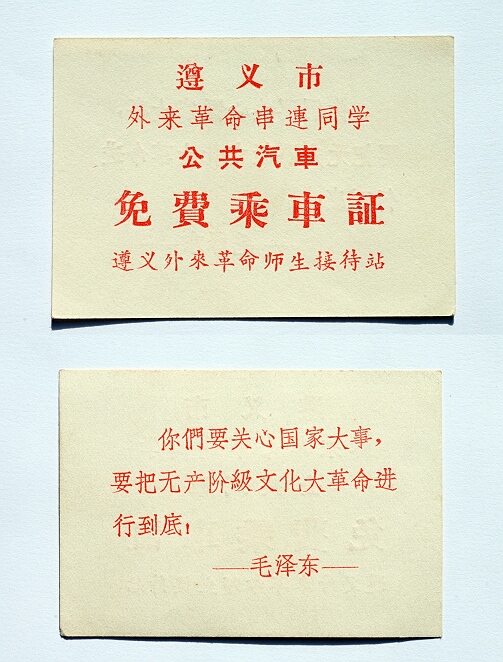 遵义市
外来革命串連同学
公共汽車
免費乘車証
遵义外來革命师生接待站
你們要关心国家大事，
要把无产阶級文化大革命进
行到底！
——毛泽东——